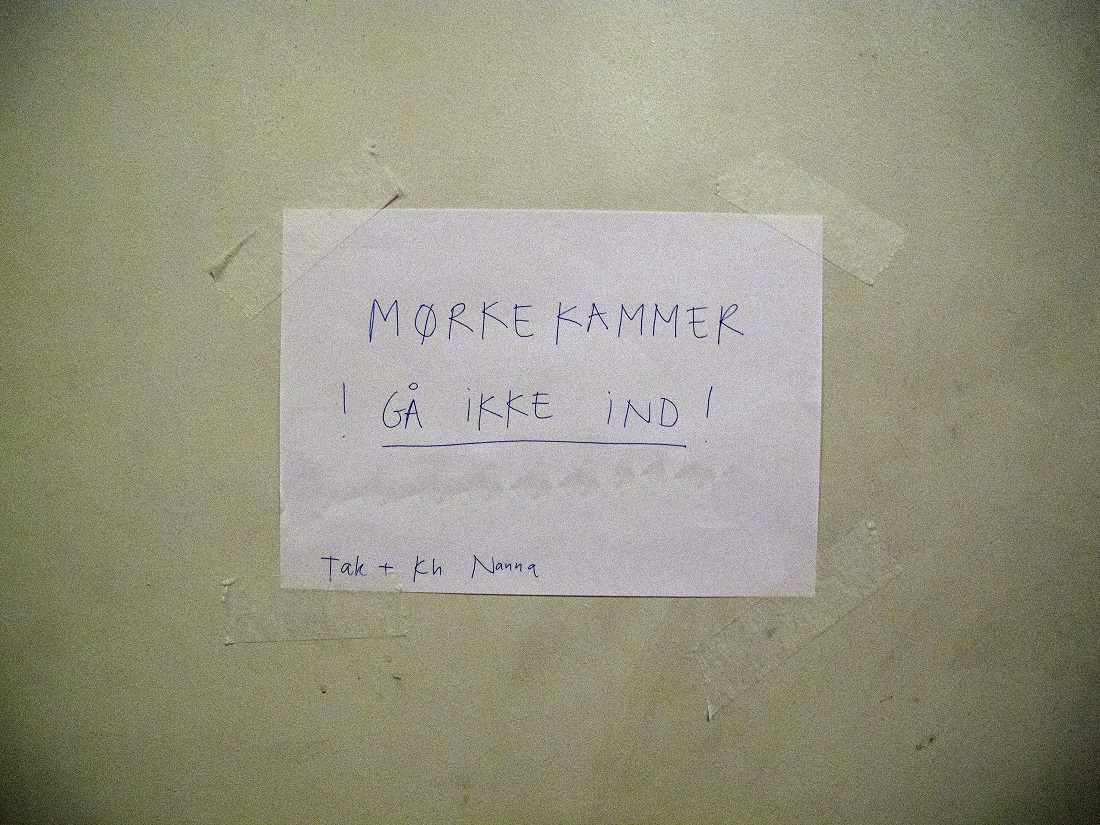 MØRKEKAMMER
! GÅ iKKE iND !
Tak + Kh Nanna